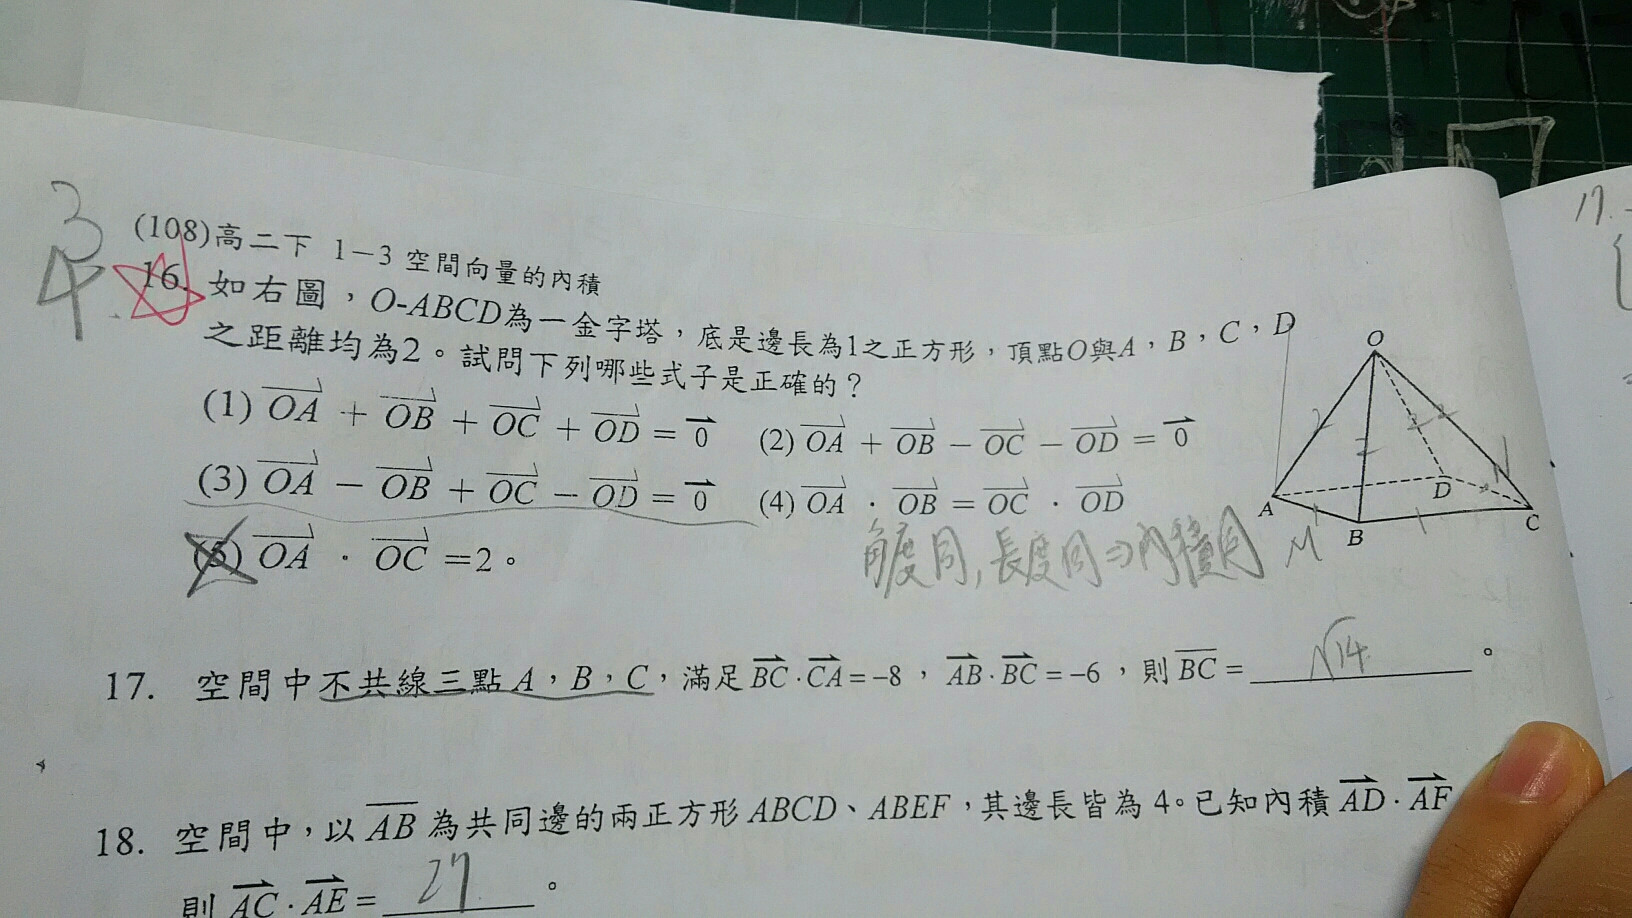 3
4
(108)高二下 1-3 空間向量的內積
16. 如右圖，O-ABCD為一金字塔，底是邊長為1之正方形，頂點O與A，B，C，D
之距離均為2。試問下列哪些式子是正確的？
(1) OA + OB + OC + OD = 0 (2) OA + OB - OC - OD = 0
(3) OA - OB + OC - OD = 0 (4) OA · OB = OC · OD
(5) OA · OC = 2。
角度同，長度同⇒內積同
O
2
A
B
C
D
M
17. 空間中不共線三點 A，B，C，滿足 BC · CA = -8，AB · BC = -6，則 BC = √14 。
18. 空間中，以 AB 為共同邊的兩正方形 ABCD、ABEF，其邊長皆為 4。已知內積 AD · AF
則 AC · AE = 27 。
17.